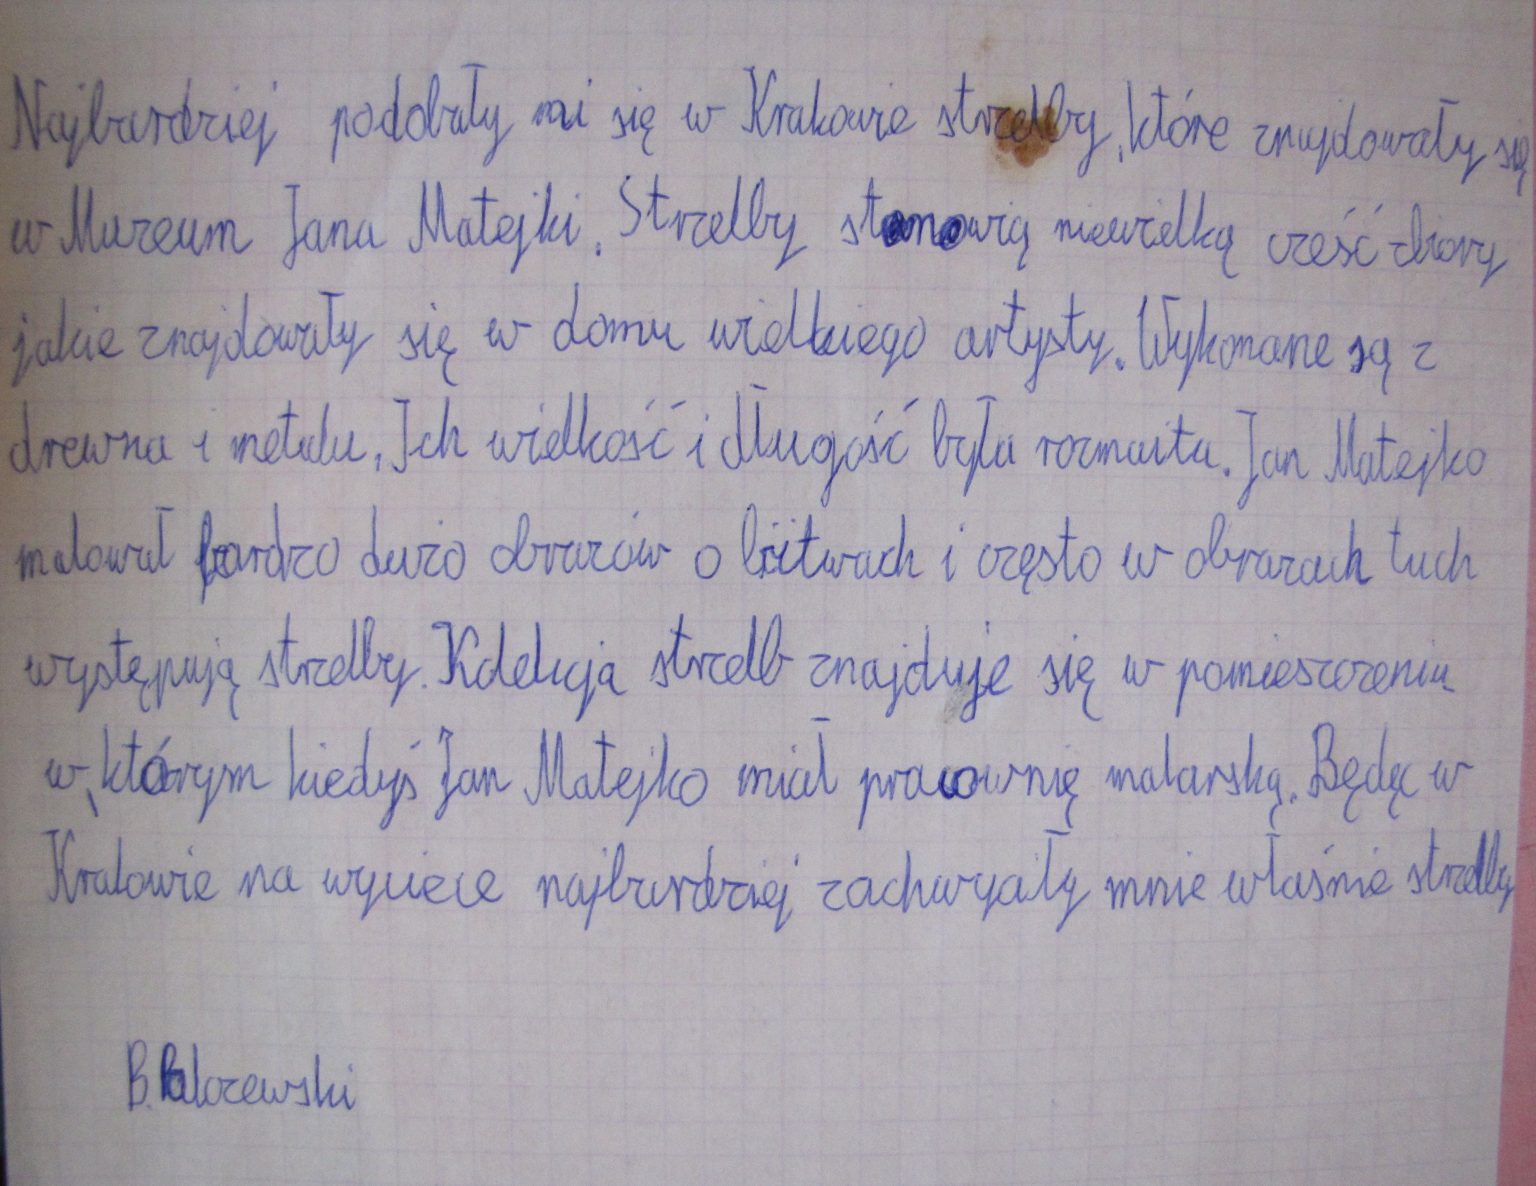 Najbardziej podobały mi się w Krakowie strzelby, które znajdowały się
w Muzeum Jana Matejki. Strzelby stanowią niewielką cześć zbiory
jakie znajdowały się w domu wielkiego artysty. Wykonane są z
drewna i metalu. Ich wielkość i długość była rozmaita. Jan Matejko
malował bardzo dużo obrazów o bitwach i często w obrazach tych
występują strzelby. Kolekcja strzelb znajduje się w pomieszczeniu
w, którym kiedyś Jan Matejko miał pracownię malarską. Będąc w
Krakowie na wyciece najbardziej zachwycały mnie właśnie strzelby
B.